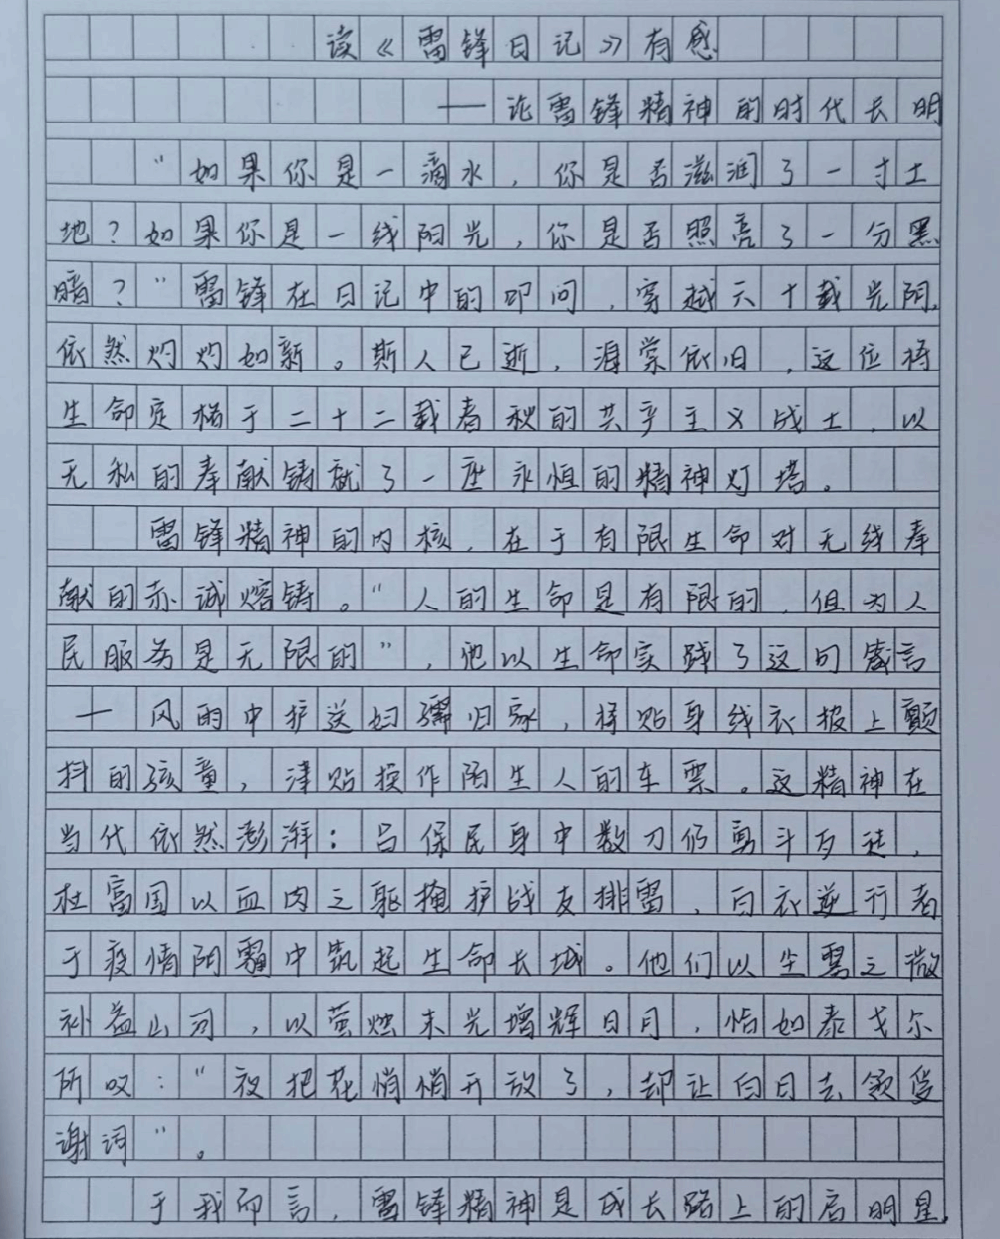 读《雷锋日记》有感
——论雷锋精神的时代长明
“如果你是一滴水，你是否滋润了一寸土
地？如果你是一线阳光，你是否照亮了一分黑
暗？”雷锋在日记中的叩问，穿越六十载光阴，
依然灼灼如新。斯人已逝，海棠依旧，这位将
生命定格于二十二载春秋的共产主义战士，以
无私的奉献铸就了一座永恒的精神灯塔。
雷锋精神的内核，在于有限生命对无线奉
献的赤诚熔铸。“人的生命是有限的，但为人
民服务是无限的”，他以生命实践了这句箴言
——风雨中护送妇孺归家，将贴身线衣披上颤
抖的孩童，津贴换作陌生人的车票。这精神在
当代依然澎湃：吕保民身中数刀仍勇斗歹徒，
杜富国以血肉之躯掩护战友排雷，白衣逆行者
于疫情阴霾中筑起生命长城。他们以尘雾之微
补益山河，以萤烛末光增辉日月，恰如泰戈尔
所叹：“夜把花悄悄开放了，却让白日去领受
谢词”。
于我而言，雷锋精神是成长路上的启明星，